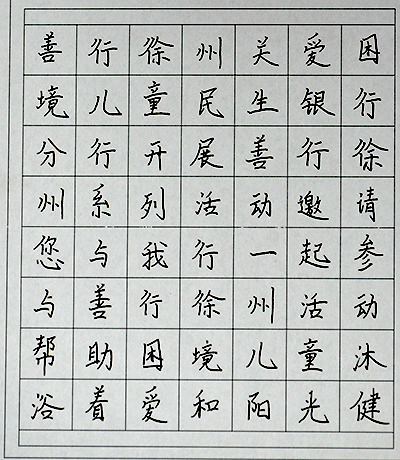 善行徐州关爱困
境儿童民生银行
分行开展善行徐
州系列活动邀请
您与我行一起参
与善行徐州活动
帮助困境儿童沐
浴着爱和阳光健